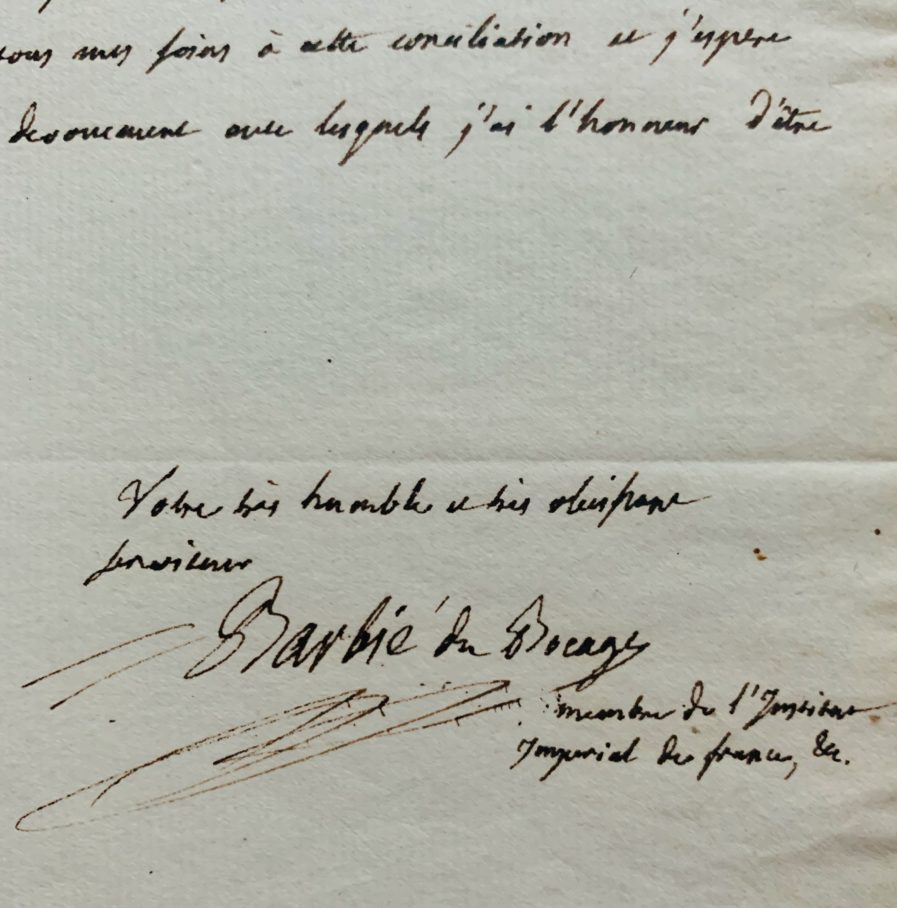 tous mes soins à cette conciliation et j'espere
devouement avec lesquels j'ai l'honneur d'être
Votre très humble et très obeissant
serviteur
Barbié du Bocage
membre de l'Institut
Imperial de france, &c.